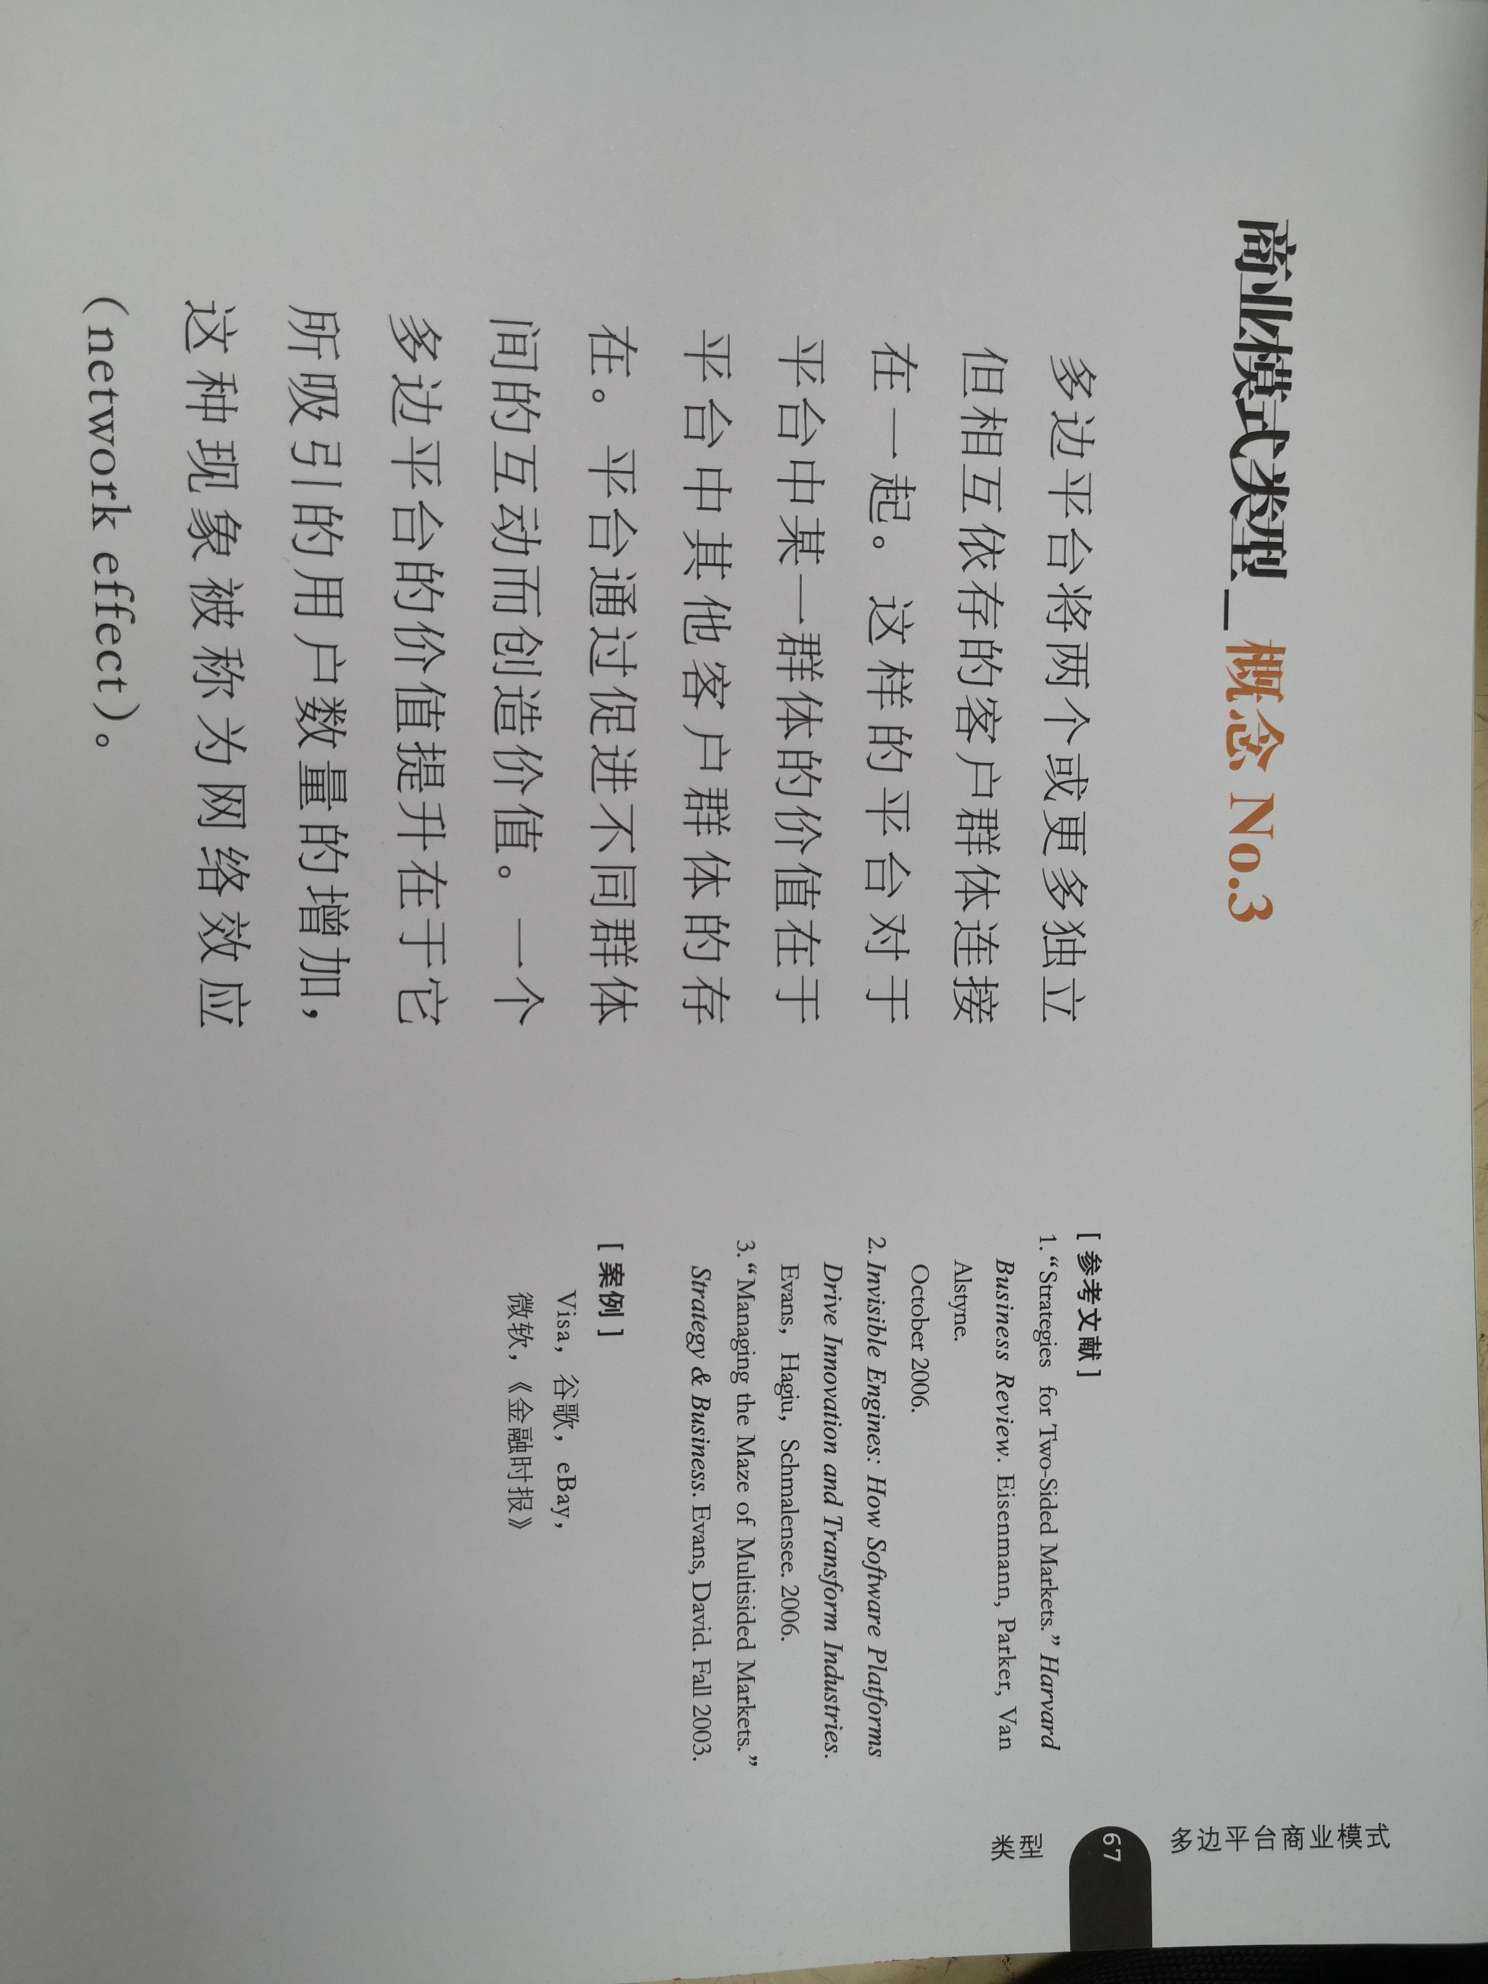 商业模式类型_概念 No.3
多边平台将两个或更多独立
但相互依存的客户群体连接
在一起。这样的平台对于
平台中某一群体的价值在于
平台中其他客户群体的存
在。平台通过促进不同群体
间的互动而创造价值。一个
多边平台的价值提升在于它
所吸引的用户数量的增加，
这种现象被称为网络效应
（network effect）。
[ 参考文献 ]
1. “Strategies for Two-Sided Markets.” Harvard
Business Review. Eisenmann, Parker, Van
Alstyne.
October 2006.
2. Invisible Engines: How Software Platforms
Drive Innovation and Transform Industries.
Evans, Hagiu, Schmalensee. 2006.
3. “Managing the Maze of Multisided Markets.”
Strategy & Business. Evans, David. Fall 2003.
[ 案例 ]
Visa，谷歌，eBay，
微软，《金融时报》
多边平台商业模式
67
类型